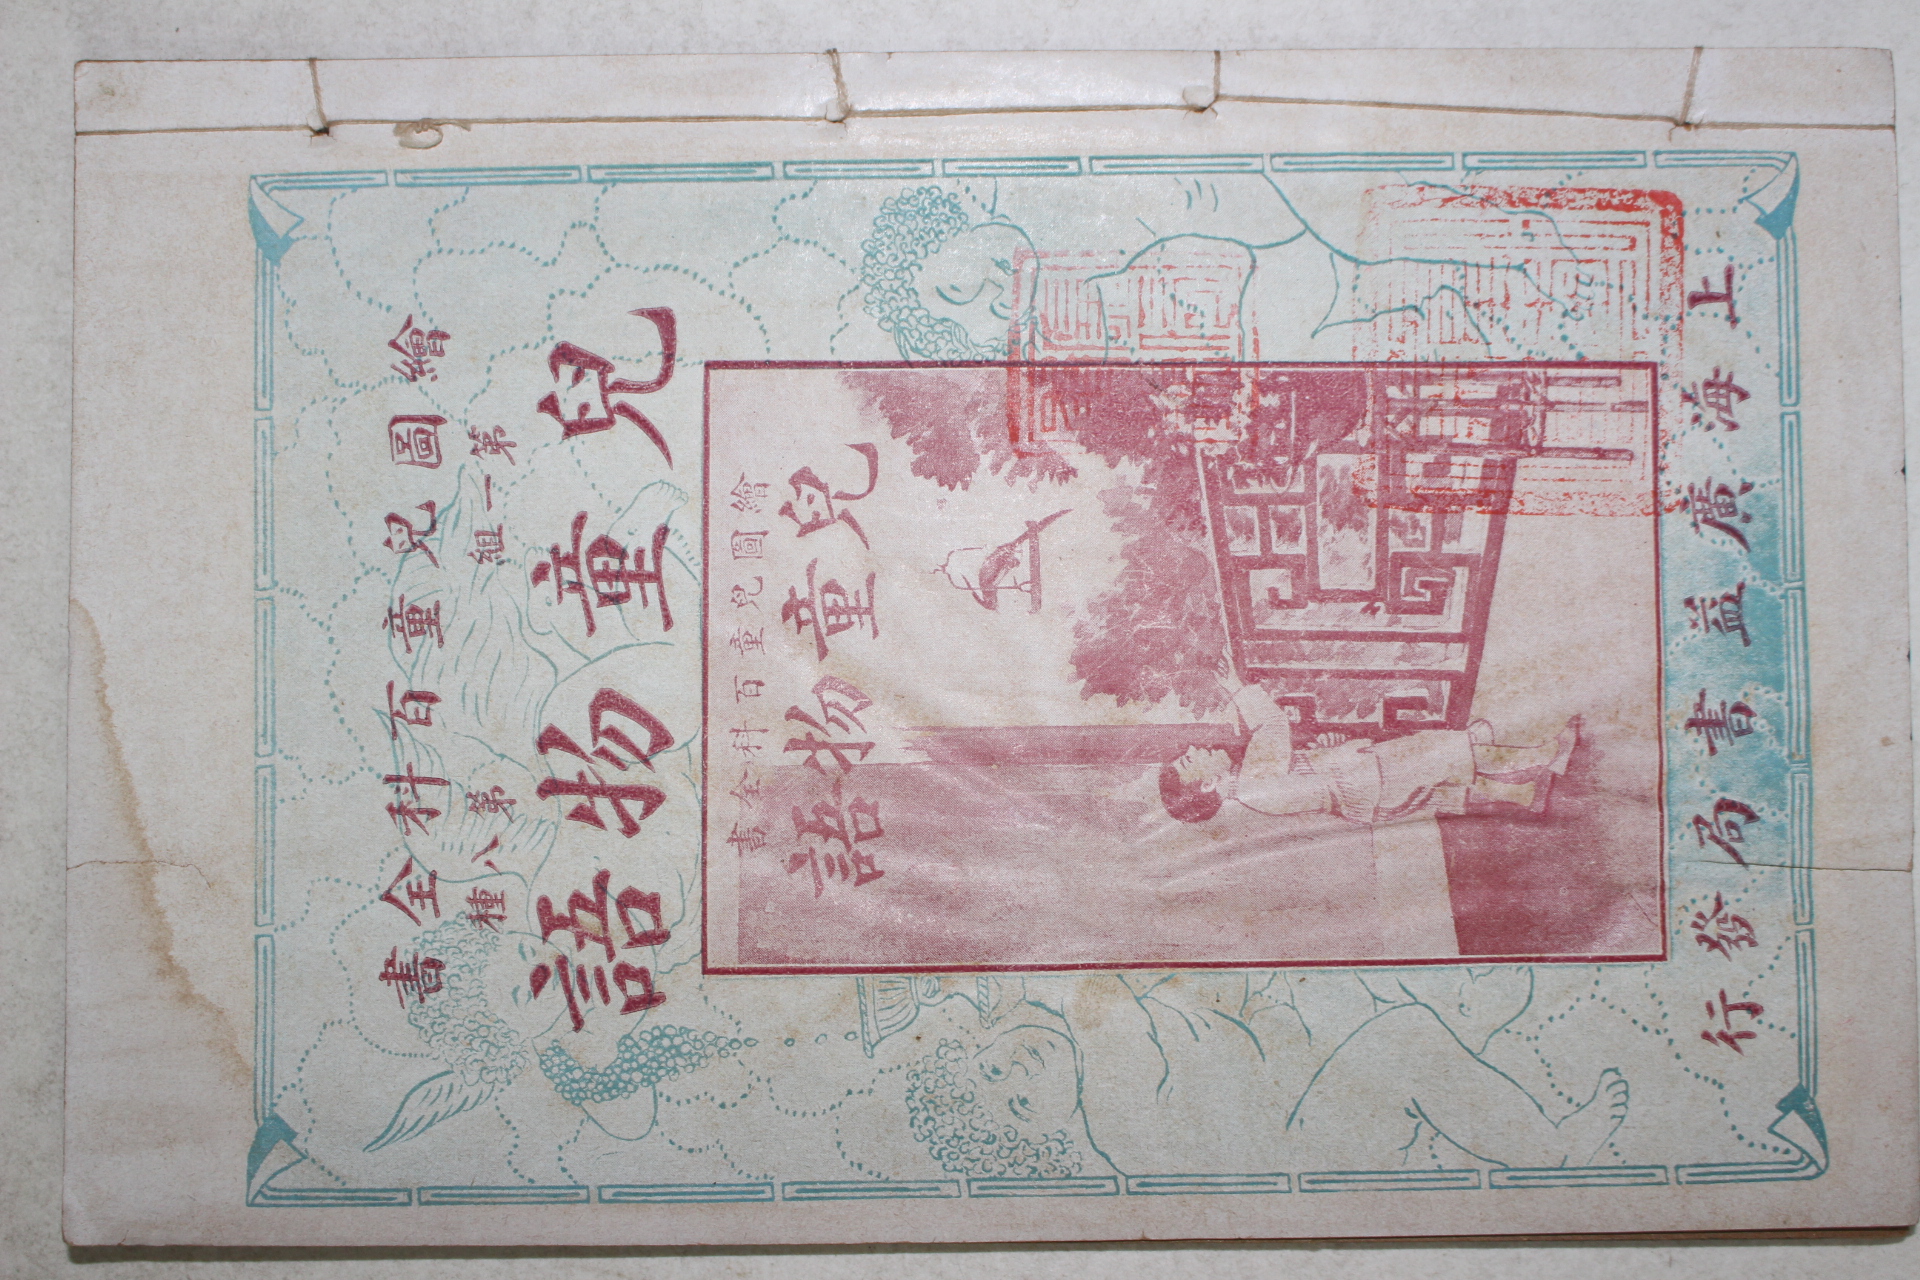 繪圖兒童百科全書
第一組 第八種
兒童物語
繪圖兒童百科全書
兒童物語
上海廣益書局發行